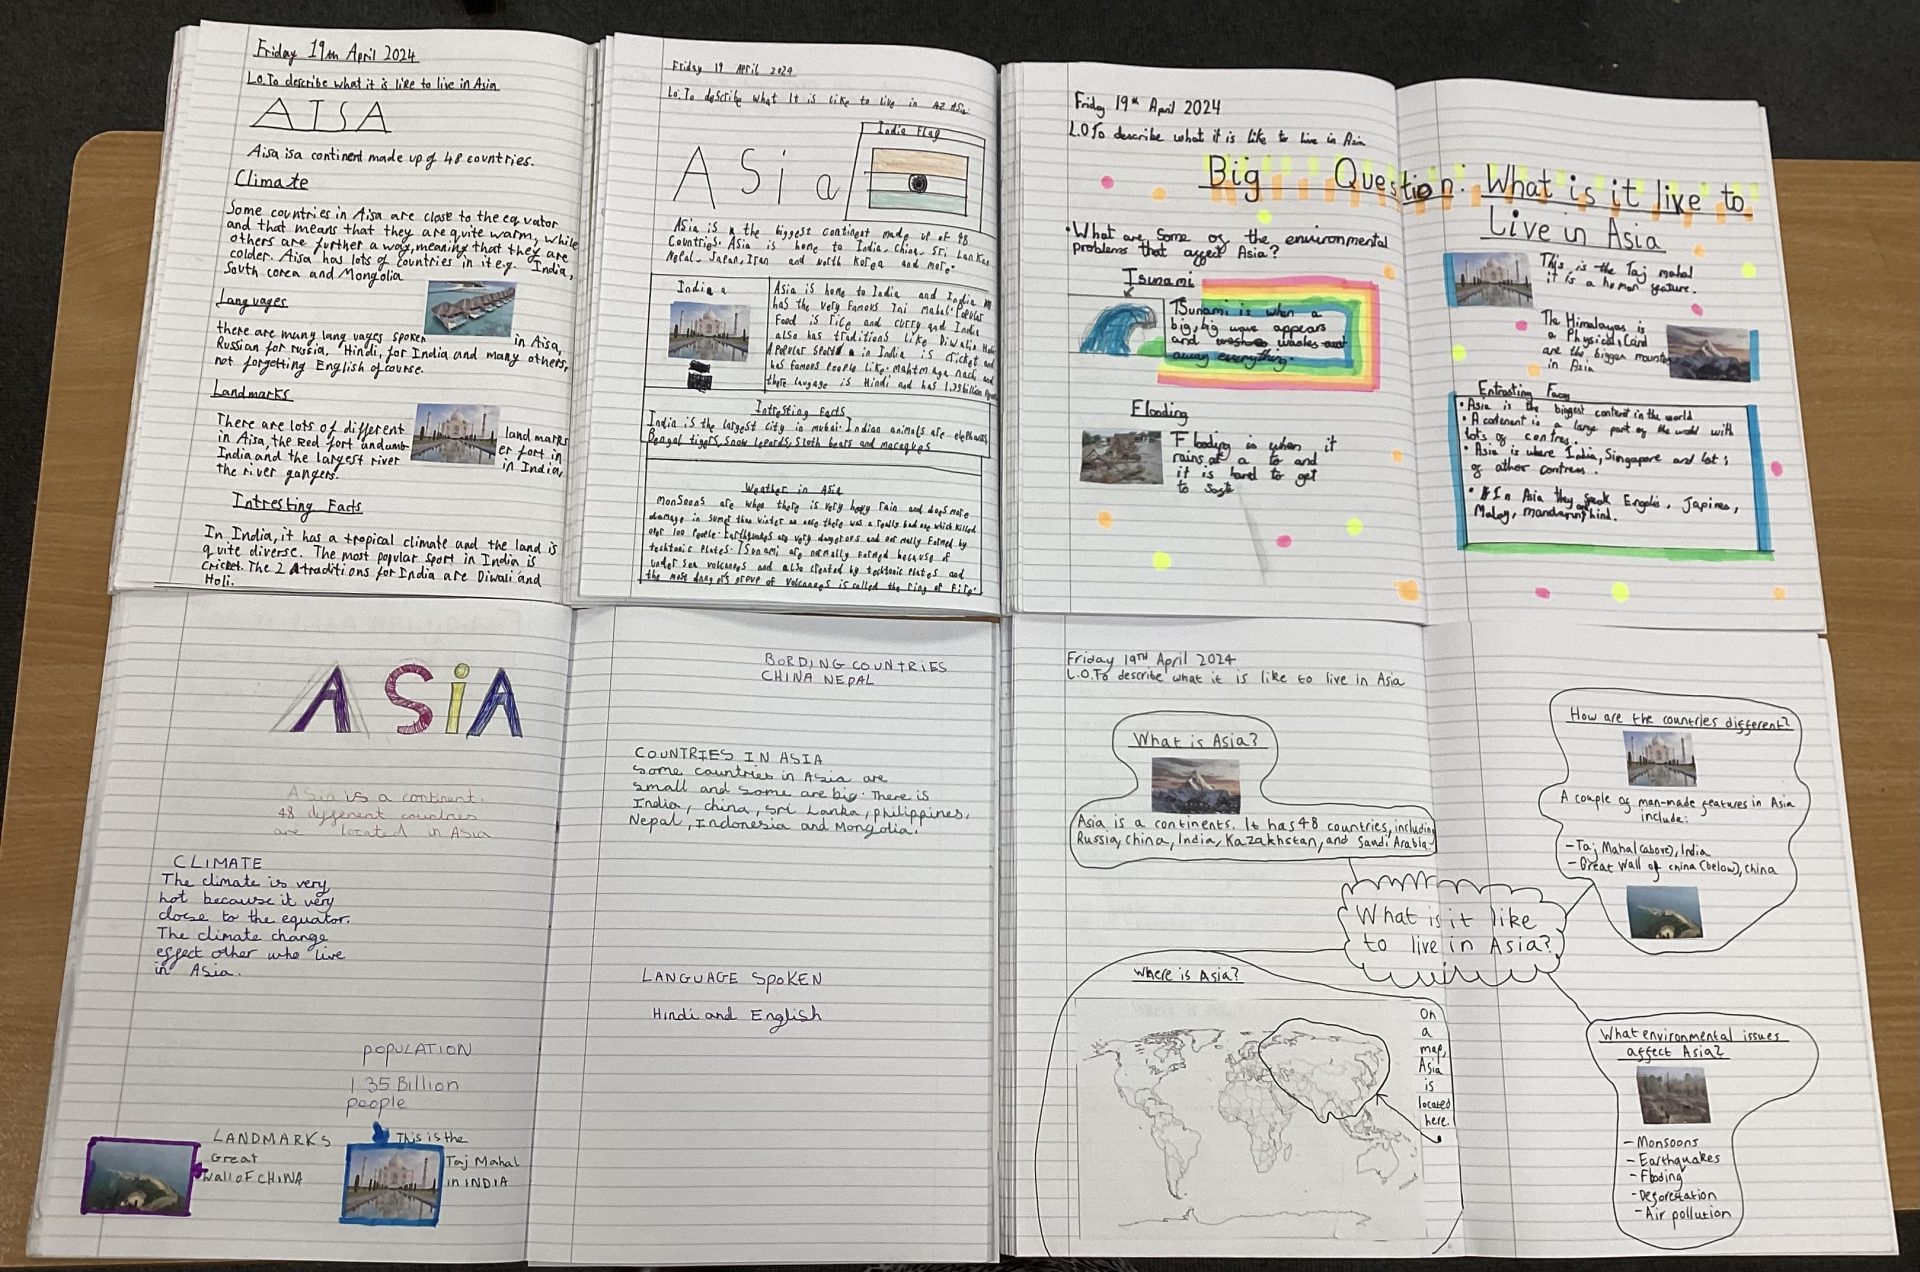 Friday 19th April 2024
L.O.To describe what it is like to live in Asia
AISA
Aisa is a continent made up of 48 countries.
Climate
Some countries in Aisa are close to the equator
and that means that they are quite warm, while
others are further a way, meaning that they are
colder. Aisa has lots of countries in it e.g. India,
South corea and Mongolia
Languages
there are many languages spoken in Aisa,
Russian for russia, Hindi, for India and many others,
not forgetting English of course.
Landmarks
There are lots of different landmarks
in Aisa, the Red fort and umber fort in
India and the largest river in India,
the river gangers.
Intresting Facts
In India, it has a tropical climate and the land is
quite diverse. The most popular sport in India is
Cricket. The 2 traditions for India are Diwali and
Holi.
Friday 19 April 2024
Lo.To describe what It is like to live in Asia.
India Flag
Asia
Asia is the biggest continent made up of 48
Countries. Asia is home to India, China, Sri Lanka,
Nepal, Japan, Iran and North Korea and more.
India
Asia is home to India and India
has the very famous Taj mahal. Popular
Food is rice and curry and India
also has traditions like Diwali Holi
A popular sport in India is cricket and
has famous People like
there language is Hindi and has 1.35 billion
Intresting Facts
India is the largest city in mubai. Indian animals are elephants,
Bengal tigers, snow lepards, sloth bears and macaques
Weather in Asia
monsoons are when there is very hevy rain and does more
damage in sumer than winter
over 100 People. Earthquakes are very dangerous and normally formed by
techtonic Plates. Tsunami are normally formed because of
under sea volcanoes and also created by techtonic plates and
the most of volcanoes is called the ring of Fire.
Friday 19th April 2024
L.O.To describe what it is like to live in Asia
Big Question: What is it like to
Live in Asia
• What are some of the environmental
problems that affect Asia?
Tsunami
Tsunami is when a
big, big wave appears
and washes
away everything.
Flooding
Flooding is when it
rains a to and
it is hard to get
to
This is the Taj mahal
it is a human feature.
The Himalayas is
a Physical, Land
are the bigger
in Asia
Entrasting Facs
• Asia is the biggest content in the world
• A contenent is a large part of the world with
lots of
• Asia is where India, Singapore and lots
of other
• In Asia they speak
Malay, mandarin, hind.
ASiA
Asia is a continent.
48 different countries
are located in Asia
CLIMATE
The climate is very
hot because it very
close to the equator.
The climate change
effect other who live
in Asia.
POPULATION
1.35 Billion
people
LANDMARKS
Great
Wall OF CHINA
This is the
Taj Mahal
in INDIA
BORDING COUNTRIES
CHINA NEPAL
COUNTRIES IN ASIA
some countries in Asia are
small and some are big. There is
India, china, sri Lanka, philippines,
Nepal, Indonesia and Mongolia.
LANGUAGE SPOKEN
Hindi and English
Friday 19TH April 2024
L.O.To describe what it is like to live in Asia
What is Asia?
Asia is a continents. It has 48 countries, including
Russia, China, India, Kazakhstan, and Saudi Arabia.
How are the countries different?
A couple of man-made features in Asia
include:
- Taj Mahal (above), India
- Great Wall of china (below), China
What is it like
to live in Asia?
Where is Asia?
On
a
map,
Asia
is
located
here.
What environmental issues
affect Asia?
- Monsoons
- Earthquakes
- Flooding
- Deforestation
- Air pollution